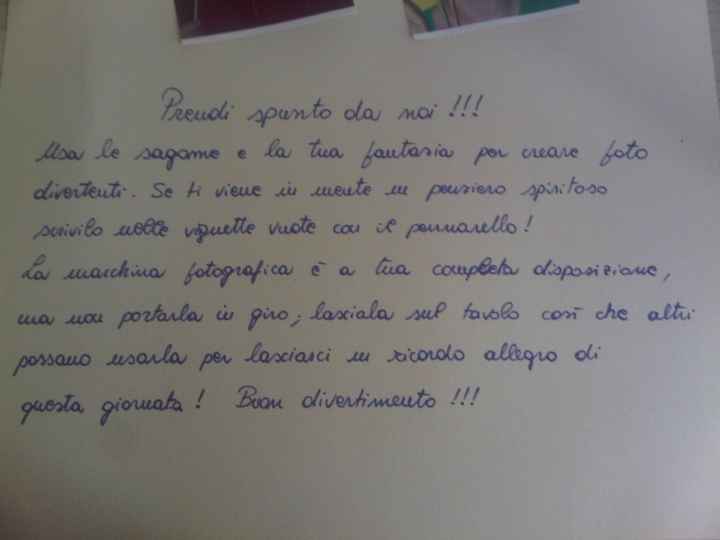 Prendi spunto da noi !!!
Usa le sagome e la tua fantasia per creare foto
divertenti. Se ti viene in mente un pensiero spiritoso
scrivilo nelle vignette vuote con il pennarello!
La macchina fotografica è a tua completa disposizione,
ma non portarla in giro; lasciala sul tavolo così che altri
possano usarla per lasciarci un ricordo allegro di
questa giornata! Buon divertimento !!!